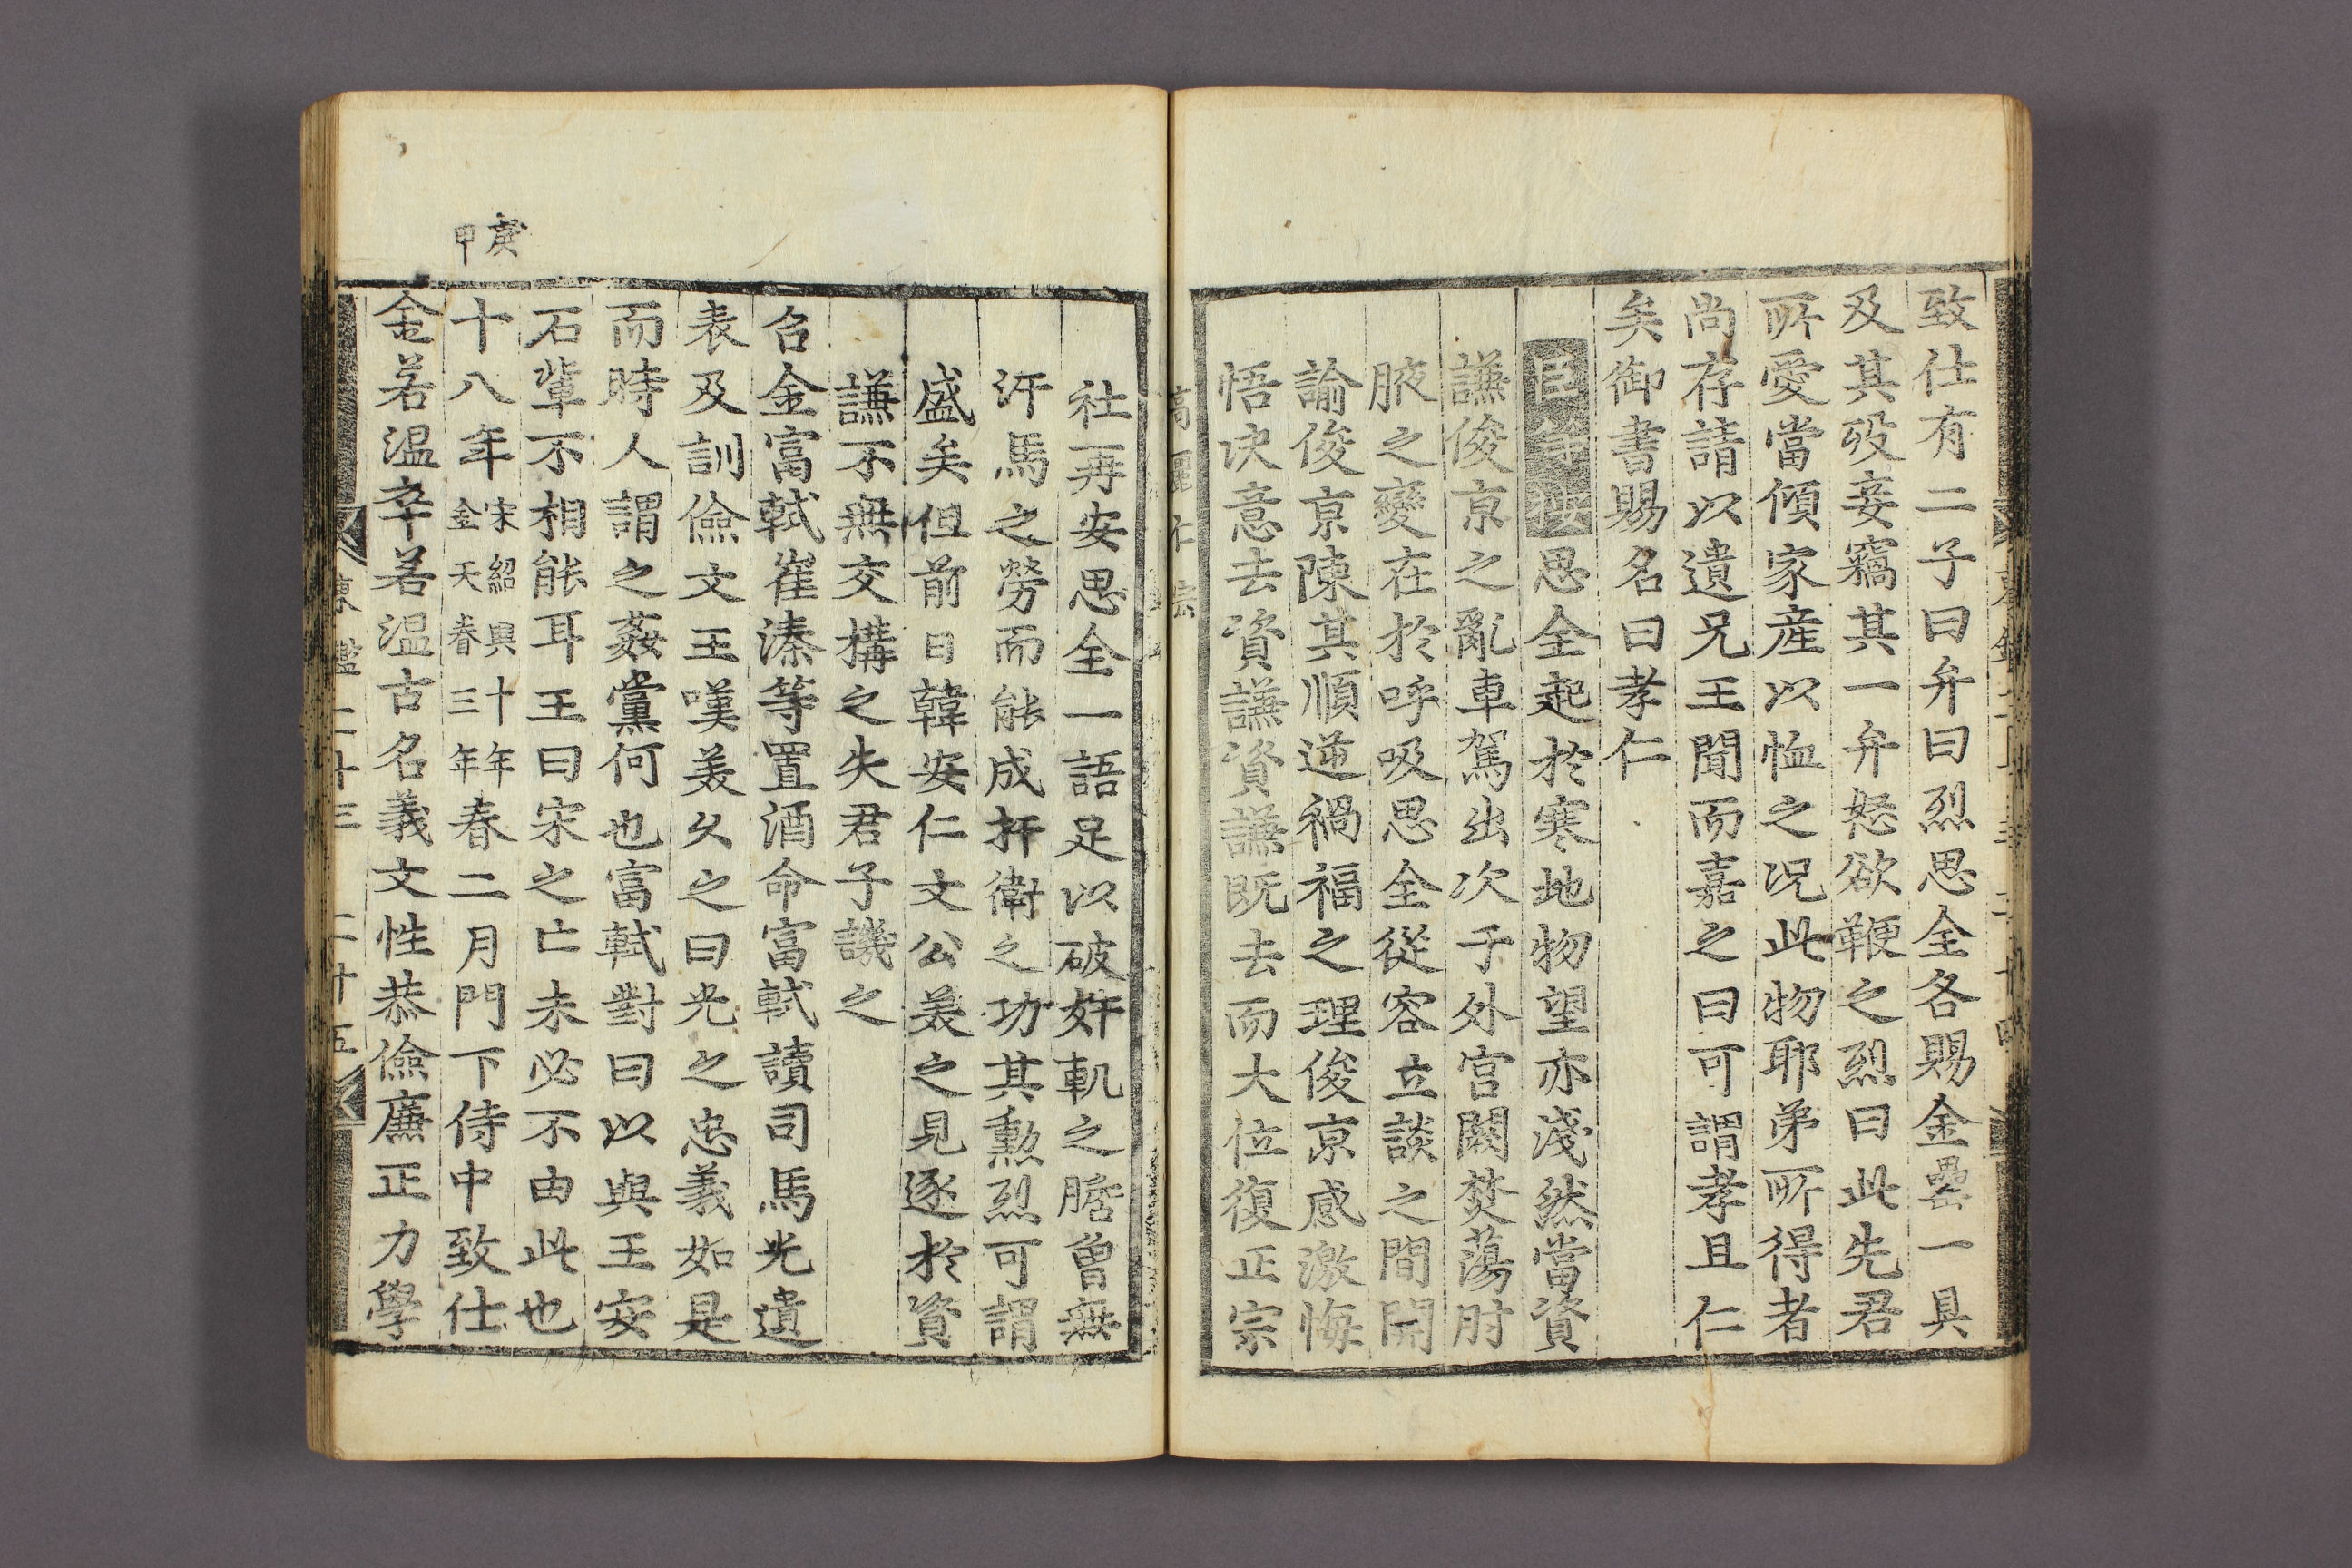 致仕有二子曰弁曰烈思全各賜金罍一具
及其歿妾竊其一弁怒欲鞭之烈曰此先君
所愛當傾家産以恤之况此物耶弟所得者
尚存請以遺兄王聞而嘉之曰可謂孝且仁
矣御書賜名曰孝仁
臣等按思全起於寒地物望亦淺然當資
謙俊京之亂車駕出次于外宮闕焚蕩肘
腋之變在於呼吸思全從容立談之間開
諭俊京陳其順逆禍福之理俊京感激悔
悟决意去資謙資謙既去而大位復正宗
高麗仁宗
社再安思全一語足以破奸軌之膽曾無
汗馬之勞而能成扞衛之功其勳烈可謂
盛矣但前日韓安仁文公美之見逐於資
謙不無交構之失君子譏之
召金富軾崔溱等置酒命富軾讀司馬光遺
表及訓儉文王嘆美久之曰光之忠義如是
而時人謂之姦黨何也富軾對曰以與王安
石輩不相能耳王曰宋之亡未必不由此也
庚
申
十八年宋紹興十年金天眷三年春二月門下侍中致仕
金若温卒若温古名義文性恭儉廉正力學
東鑑二十三 二十五